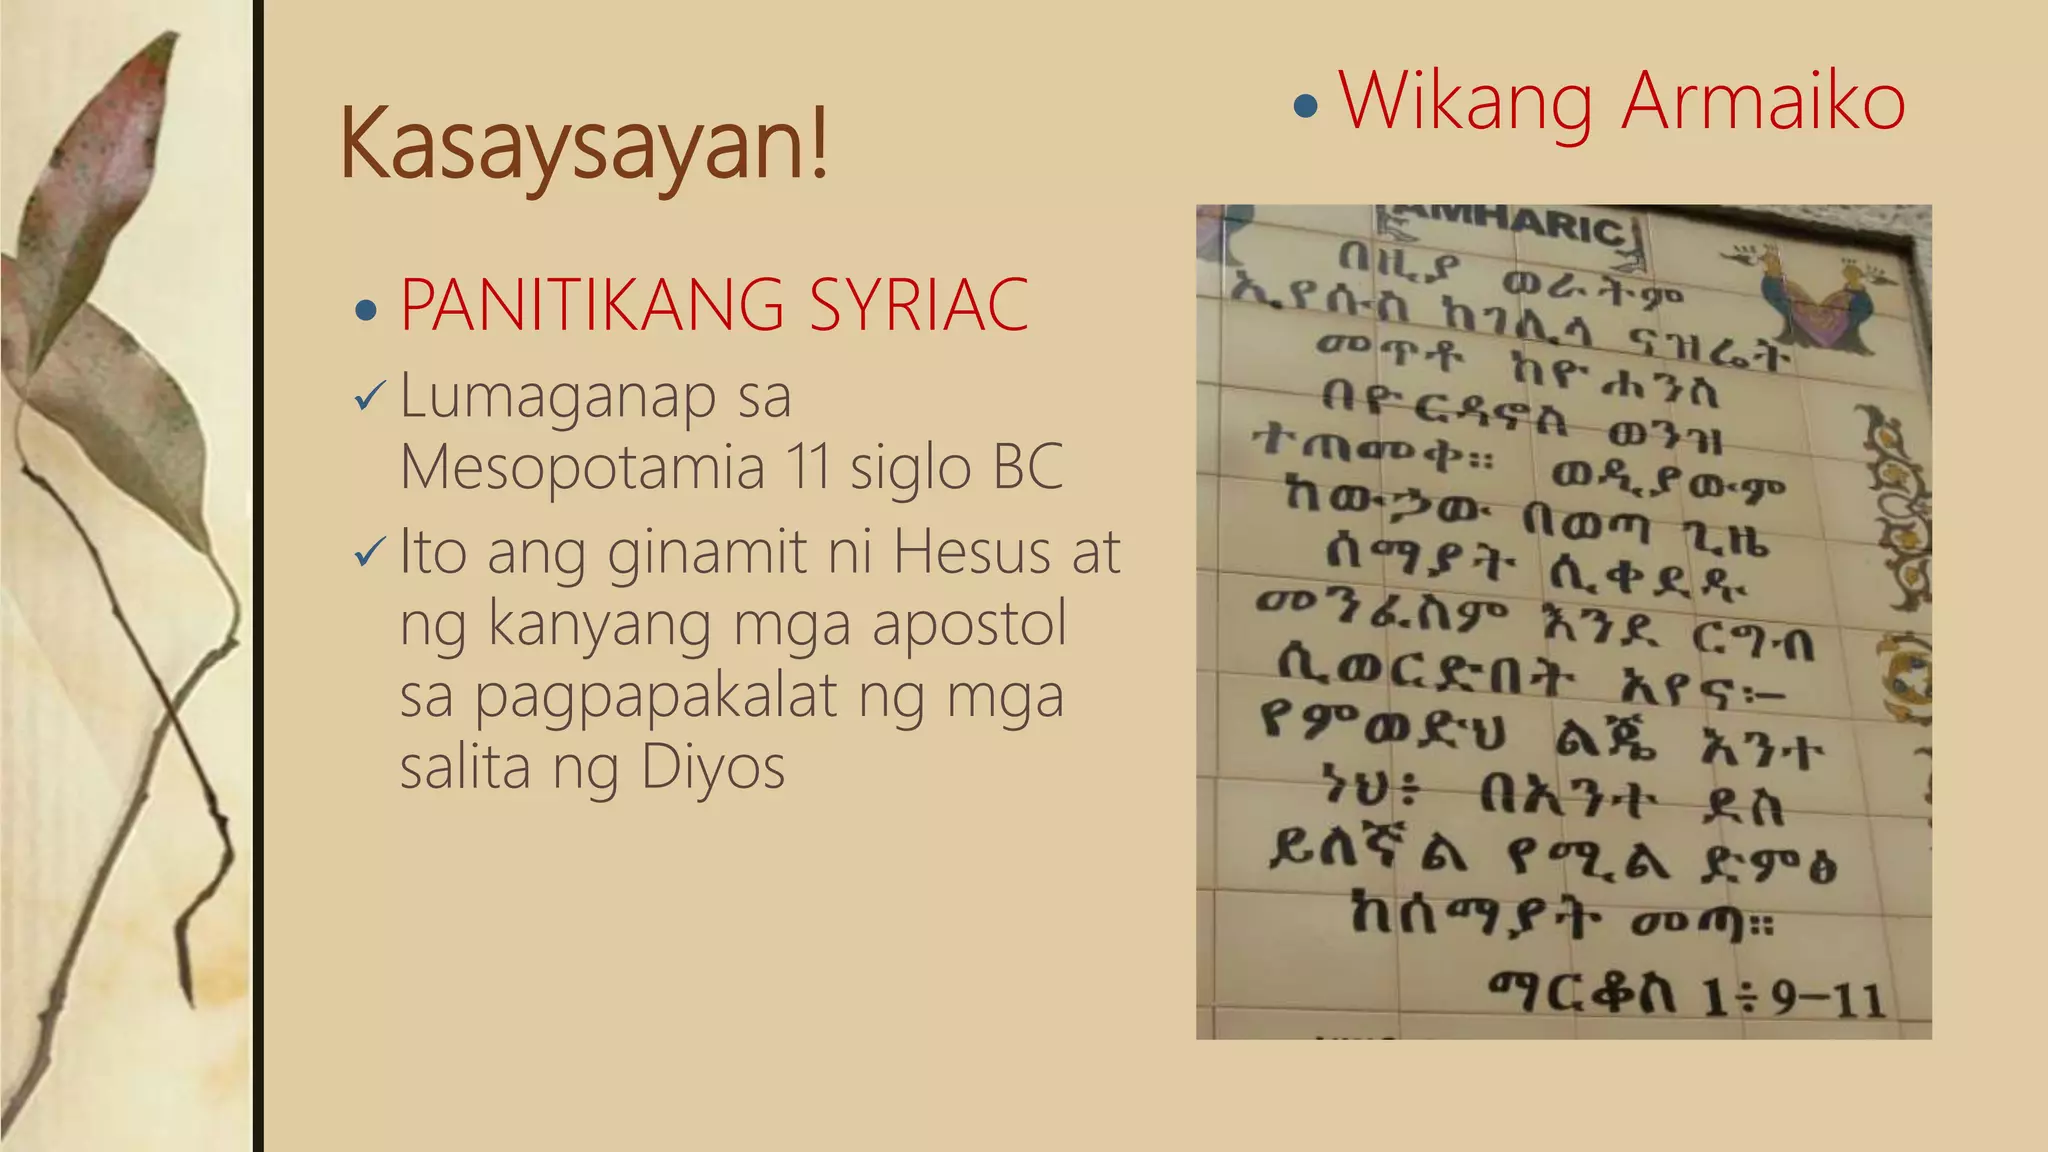 Kasaysayan!
• PANITIKANG SYRIAC
✓ Lumaganap sa
Mesopotamia 11 siglo BC
✓ Ito ang ginamit ni Hesus at
ng kanyang mga apostol
sa pagpapakalat ng mga
salita ng Diyos
• Wikang Armaiko
AMHARIC
በዚያ ወራትም
ኢየሱስ ከገሊላ ናዝሬት
መጥቶ ከዮሐንስ
በዮርዳኖስ ወንዝ
ተጠመቀ። ወዲያውም
ከውኃው በወጣ ጊዜ
ሰማያት ሲቀደዱ
መንፈስም እንደ ርግብ
ሲወርድበት አየና፡—
የምወድህ ልጄ አንተ
ነህ፥ በአንተ ደስ
ይለኛል የሚል ድምፅ
ከሰማያት መጣ።
ማርቆስ 1÷9—11